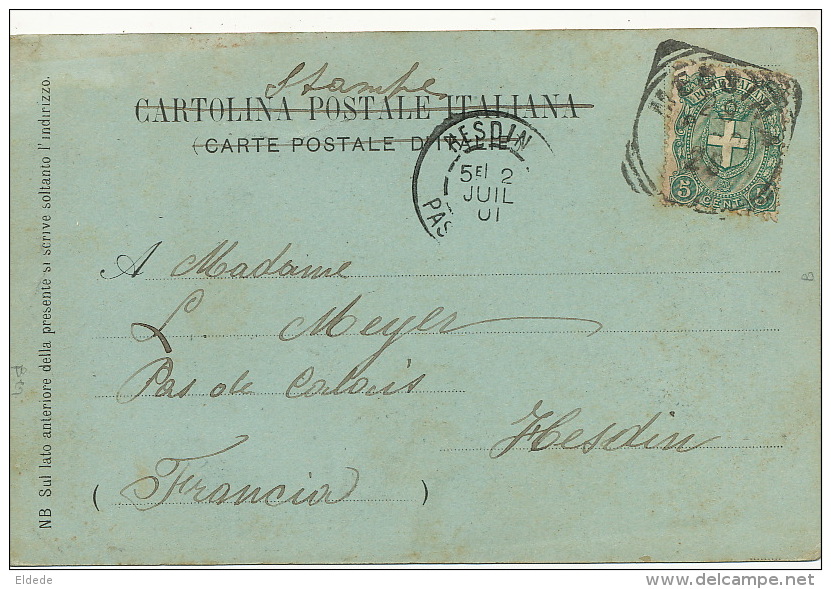 Stampe
CARTOLINA POSTALE ITALIANA
(CARTE POSTALE D'ITALIE)
HESDIN
5E 2
JUIL
01
PAS
5 CENT 5
A Madame
L. Meyer
Pas de Calais
Hesdin
(Francia)
NB Sul lato anteriore della presente si scrive soltanto l'indirizzo.
B
Eldede
www.delcampe.net